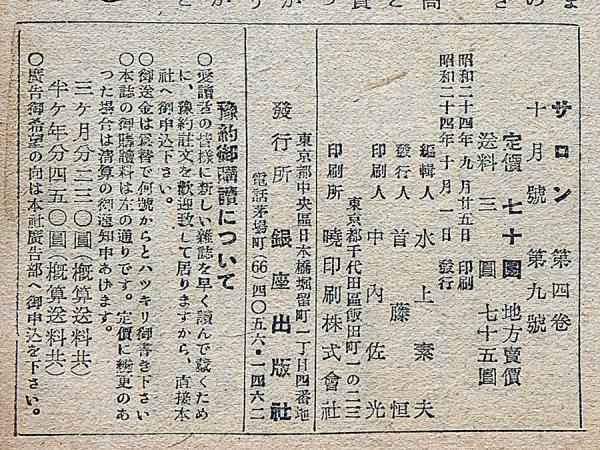 サロン 第四卷
十月號 第九號
定價 七十圓 地方賣價
送料 三圓 七十五圓
昭和二十四年九月廿五日 印刷
昭和二十四年十月一日 發行
編輯人 水上 夫
發行人 首藤恒
印刷人 中内佐光
東京都千代田區飯田町一の二三
印刷所 曉印刷株式會社
東京都中央區日本橋堀留町一丁目四番地
發行所 銀座出版社
電話茅場町(66)四〇五六・一四六二
豫約御購讀について
〇愛讀者の皆樣に新しい雜誌を早く讀んで戴くため
に、豫約註文を歡迎致して居りますから、直接本
社へ御申込下さい。
〇御送金は爲替で何號からとハツキリ御書き下さい
〇本誌の御購讀料は左の通りです。定價に變更のあ
つた場合は淸算の御通知申あげます。
三ヶ月分二三〇圓(槪算送料共)
半ヶ年分四五〇圓(槪算送料共)
〇廣告御希望の向は本社廣告部へ御申込を下さい。